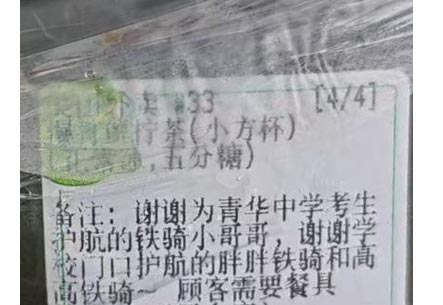 #33 [4/4]
柠茶(小方杯)
五分糖)
备注: 谢谢为青华中学考生
护航的铁骑小哥哥, 谢谢学
校门口护航的胖胖铁骑和高
高铁骑~ 顾客需要餐具